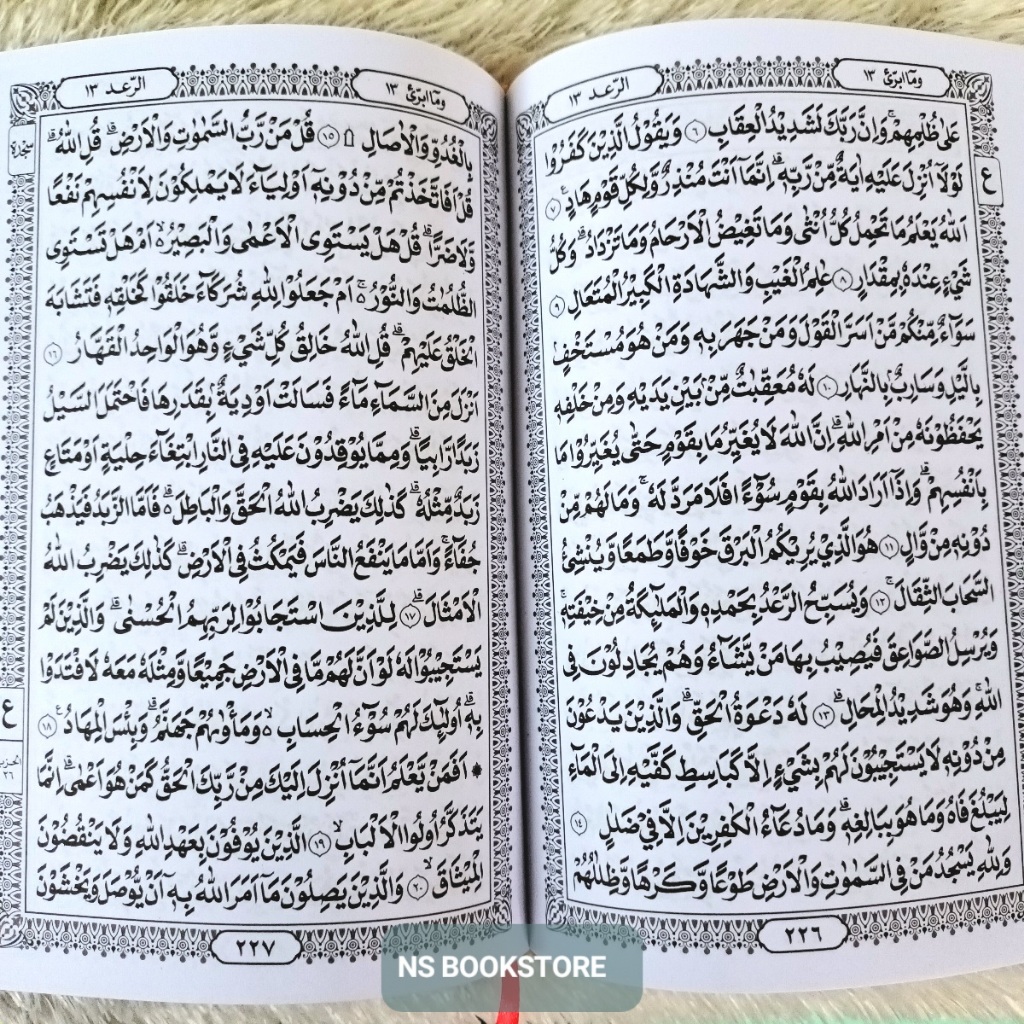 وما ابرئ ١٣
الرّعد ١٣
عَلٰى ظُلْمِهِمْۚ وَاِنَّ رَبَّكَ لَشَدِيْدُ الْعِقَابِ ٦ وَيَقُوْلُ الَّذِيْنَ كَفَرُوْا
ع
لَوْلَآ اُنْزِلَ عَلَيْهِ اٰيَةٌ مِّنْ رَّبِّهٖۗ اِنَّمَآ اَنْتَ مُنْذِرٌ وَّلِكُلِّ قَوْمٍ هَادٍ ࣖ ٧
اَللّٰهُ يَعْلَمُ مَا تَحْمِلُ كُلُّ اُنْثٰى وَمَا تَغِيْضُ الْاَرْحَامُ وَمَا تَزْدَادُۗ وَكُلُّ
شَيْءٍ عِنْدَهٗ بِمِقْدَارٍ ٨ عٰلِمُ الْغَيْبِ وَالشَّهَادَةِ الْكَبِيْرُ الْمُتَعَالِ ٩
سَوَاۤءٌ مِّنْكُمْ مَّنْ اَسَرَّ الْقَوْلَ وَمَنْ جَهَرَ بِهٖ وَمَنْ هُوَ مُسْتَخْفٍۢ
بِالَّيْلِ وَسَارِبٌۢ بِالنَّهَارِ ١٠ لَهٗ مُعَقِّبٰتٌ مِّنْۢ بَيْنِ يَدَيْهِ وَمِنْ خَلْفِهٖ
يَحْفَظُوْنَهٗ مِنْ اَمْرِ اللّٰهِۗ اِنَّ اللّٰهَ لَا يُغَيِّرُ مَا بِقَوْمٍ حَتّٰى يُغَيِّرُوْا مَا
بِاَنْفُسِهِمْۗ وَاِذَآ اَرَادَ اللّٰهُ بِقَوْمٍ سُوْۤءًا فَلَا مَرَدَّ لَهٗۚ وَمَا لَهُمْ مِّنْ
دُوْنِهٖ مِنْ وَّالٍ ١١ هُوَ الَّذِيْ يُرِيْكُمُ الْبَرْقَ خَوْفًا وَّطَمَعًا وَّيُنْشِئُ
السَّحَابَ الثِّقَالَۚ ١٢ وَيُسَبِّحُ الرَّعْدُ بِحَمْدِهٖ وَالْمَلٰۤىِٕكَةُ مِنْ خِيْفَتِهٖۚ
وَيُرْسِلُ الصَّوَاعِقَ فَيُصِيْبُ بِهَا مَنْ يَّشَاۤءُ وَهُمْ يُجَادِلُوْنَ فِى
اللّٰهِۚ وَهُوَ شَدِيْدُ الْمِحَالِۗ ١٣ لَهٗ دَعْوَةُ الْحَقِّۗ وَالَّذِيْنَ يَدْعُوْنَ
مِنْ دُوْنِهٖ لَا يَسْتَجِيْبُوْنَ لَهُمْ بِشَيْءٍ اِلَّا كَبَاسِطِ كَفَّيْهِ اِلَى الْمَاۤءِ
لِيَبْلُغَ فَاهُ وَمَا هُوَ بِبَالِغِهٖۗ وَمَا دُعَاۤءُ الْكٰفِرِيْنَ اِلَّا فِيْ ضَلٰلٍ ١٤
وَلِلّٰهِ يَسْجُدُ مَنْ فِى السَّمٰوٰتِ وَالْاَرْضِ طَوْعًا وَّكَرْهًا وَّظِلٰلُهُمْ
٢٢٦
وما ابرئ ١٣
الرّعد ١٣
بِالْغُدُوِّ وَالْاٰصَالِ ۩ ١٥ قُلْ مَنْ رَّبُّ السَّمٰوٰتِ وَالْاَرْضِۗ قُلِ اللّٰهُۗ
سجدة
قُلْ اَفَاتَّخَذْتُمْ مِّنْ دُوْنِهٖٓ اَوْلِيَاۤءَ لَا يَمْلِكُوْنَ لِاَنْفُسِهِمْ نَفْعًا
وَّلَا ضَرًّاۗ قُلْ هَلْ يَسْتَوِى الْاَعْمٰى وَالْبَصِيْرُ ەۙ اَمْ هَلْ تَسْتَوِى
الظُّلُمٰتُ وَالنُّوْرُ ەۚ اَمْ جَعَلُوْا لِلّٰهِ شُرَكَاۤءَ خَلَقُوْا كَخَلْقِهٖ فَتَشَابَهَ
الْخَلْقُ عَلَيْهِمْۗ قُلِ اللّٰهُ خَالِقُ كُلِّ شَيْءٍ وَّهُوَ الْوَاحِدُ الْقَهَّارُ ١٦
اَنْزَلَ مِنَ السَّمَاۤءِ مَاۤءً فَسَالَتْ اَوْدِيَةٌ ۢ بِقَدَرِهَا فَاحْتَمَلَ السَّيْلُ
زَبَدًا رَّابِيًاۗ وَمِمَّا يُوْقِدُوْنَ عَلَيْهِ فِى النَّارِ ابْتِغَاۤءَ حِلْيَةٍ اَوْ مَتَاعٍ
زَبَدٌ مِّثْلُهٗۗ كَذٰلِكَ يَضْرِبُ اللّٰهُ الْحَقَّ وَالْبَاطِلَ ەۗ فَاَمَّا الزَّبَدُ فَيَذْهَبُ
جُفَاۤءًۚ وَاَمَّا مَا يَنْفَعُ النَّاسَ فَيَمْكُثُ فِى الْاَرْضِۗ كَذٰلِكَ يَضْرِبُ اللّٰهُ
الْاَمْثَالَۗ ١٧ لِلَّذِيْنَ اسْتَجَابُوْا لِرَبِّهِمُ الْحُسْنٰىۗ وَالَّذِيْنَ لَمْ
يَسْتَجِيْبُوْا لَهٗ لَوْ اَنَّ لَهُمْ مَّا فِى الْاَرْضِ جَمِيْعًا وَّمِثْلَهٗ مَعَهٗ لَافْتَدَوْا
بِهٖۗ اُولٰۤىِٕكَ لَهُمْ سُوْۤءُ الْحِسَابِ ەۙ وَمَأْوٰىهُمْ جَهَنَّمُۗ وَبِئْسَ الْمِهَادُ ࣖ ١٨
ع
۞ اَفَمَنْ يَّعْلَمُ اَنَّمَآ اُنْزِلَ اِلَيْكَ مِنْ رَّبِّكَ الْحَقُّ كَمَنْ هُوَ اَعْمٰىۗ اِنَّمَا
الحزب
٢٦
يَتَذَكَّرُ اُولُوا الْاَلْبَابِۙ ١٩ الَّذِيْنَ يُوْفُوْنَ بِعَهْدِ اللّٰهِ وَلَا يَنْقُضُوْنَ
الْمِيْثَاقَۙ ٢٠ وَالَّذِيْنَ يَصِلُوْنَ مَآ اَمَرَ اللّٰهُ بِهٖٓ اَنْ يُّوْصَلَ وَيَخْشَوْنَ
٢٢٧
NS BOOKSTORE